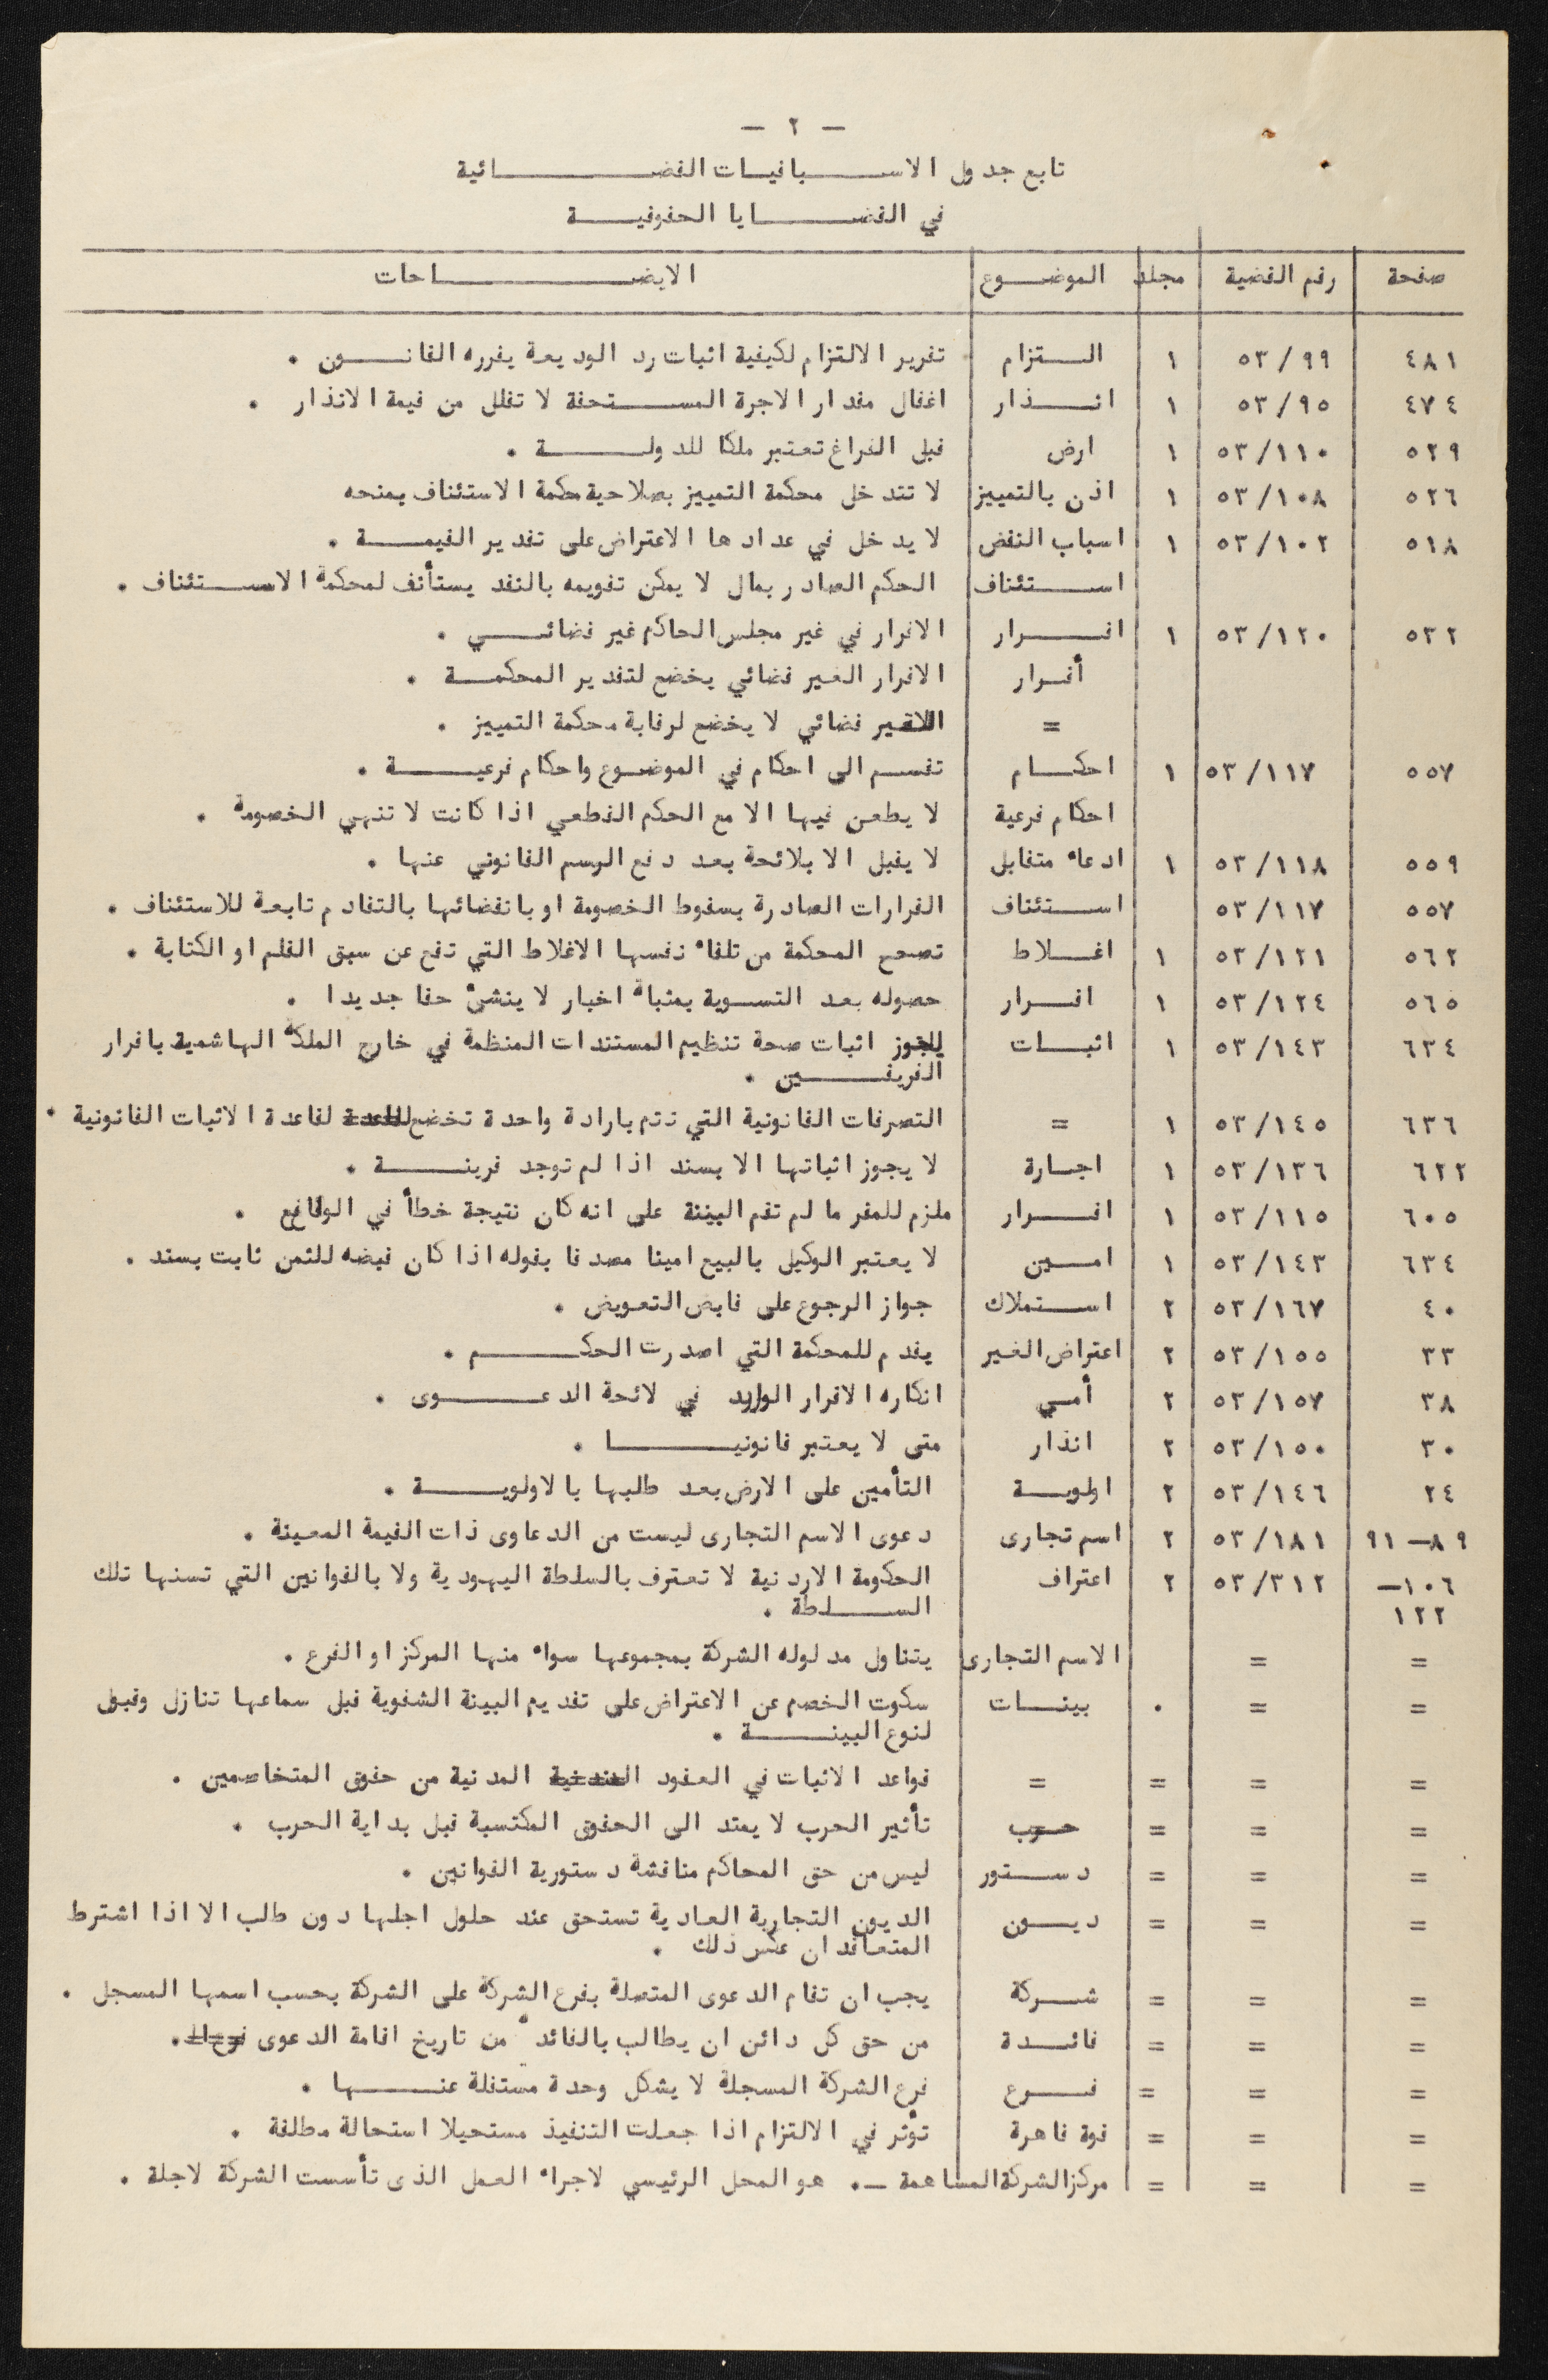 — ٢ —
تابع جدول الاسبافيات القضائية
في القضايا الحقوقية
صفحة رقم القضية مجلد الموضوع الايضاحات
٤٨١ ٥٣/٩٩ ١ التزام تقرير الالتزام لكيفية اثبات رد الوديعة يقرره القانون .
٤٧٤ ٥٣/٩٥ ١ انذار اغفال مقدار الاجرة المستحقة لا تقلل من قيمة الانذار .
٥٢٩ ٥٣/١١٠ ١ ارض قبل الفراغ تعتبر ملكا للدولة .
٥٢٦ ٥٣/١٠٨ ١ اذن بالتمييز لا تتدخل محكمة التمييز بصلاحية محكمة الاستئناف بمنحه
٥١٨ ٥٣/١٠٢ ١ اسباب النقض لا يدخل في عدادها الاعتراض على تقدير القيمة .
استئناف الحكم الصادر بمال لا يمكن تقويمه بالنقد يستأنف لمحكمة الاستئناف .
٥٣٢ ٥٣/١٢٠ ١ اقرار الاقرار في غير مجلس الحاكم غير قضائي .
أقرار الاقرار الغير قضائي يخضع لتقدير المحكمة .
= الغير قضائي لا يخضع لرقابة محكمة التمييز .
٥٥٧ ٥٣/١١٧ ١ احكام تقسم الى احكام في الموضوع واحكام فرعية .
احكام فرعية لا يطعن فيها الا مع الحكم القطعي اذا كانت لا تنهي الخصومة .
٥٥٩ ٥٣/١١٨ ١ ادعاء متقابل لا يقبل الا بلائحة بعد دفع الرسم القانوني عنها .
٥٥٧ ٥٣/١١٧ استئناف القرارات الصادرة بسقوط الخصومة او بانقضائها بالتقادم تابعة للاستئناف .
٥٦٢ ٥٣/١٢١ ١ اغلاط تصحح المحكمة من تلقاء نفسها الاغلاط التي تقع عن سبق القلم او الكتابة .
٥٦٥ ٥٣/١٢٤ ١ اقرار حصوله بعد التسوية بمثباة اخبار لا ينشئ حقا جديدا .
٦٣٤ ٥٣/١٤٣ ١ اثبات يجوز اثبات صحة تنظيم المستندات المنظمة في خارج الملكة الهاشمية باقرار
الفريقين .
٦٣٦ ٥٣/١٤٥ ١ = التصرفات القانونية التي تتم بارادة واحدة تخضع لقاعدة الاثبات القانونية .
٦٢٢ ٥٣/١٣٦ ١ اجارة لا يجوز اثباتها الا بسند اذا لم توجد قرينة .
٦٠٥ ٥٣/١١٥ ١ اقرار ملزم للمقر ما لم تقم البينة على انه كان نتيجة خطأ في الوقائع .
٦٣٤ ٥٣/١٤٣ ١ امين لا يعتبر الوكيل بالبيع امينا مصدقا بقوله اذا كان قبضه للثمن ثابت بسند .
٤٠ ٥٣/١٦٧ ٢ استملاك جواز الرجوع على قابض التعويض .
٣٣ ٥٣/١٥٥ ٢ اعتراض الغير يقدم للمحكمة التي اصدرت الحكم .
٣٨ ٥٣/١٥٧ ٢ أمي انكاره الاقرار الوارد في لائحة الدعوى .
٣٠ ٥٣/١٥٠ ٢ انذار متى لا يعتبر قانونيا .
٢٤ ٥٣/١٤٦ ٢ اولوية التأمين على الارض بعد طلبها بالاولوية .
٨٩—٩١ ٥٣/١٨١ ٢ اسم تجارى دعوى الاسم التجارى ليست من الدعاوى ذات القيمة المعينة .
١٠٦— ٥٣/٣١٢ ٢ اعتراف الحكومة الاردنية لا تعترف بالسلطة اليهودية ولا بالقوانين التي تسنها تلك
١٢٢ السلطة .
= = الاسم التجارى يتناول مدلوله الشركة بمجموعها سواء منها المركز او الفرع .
= = . بينات سكوت الخصم عن الاعتراض على تقديم البينة الشفوية قبل سماعها تنازل وقبول
لنوع البينة .
= = = = قواعد الاثبات في العقود المدنية من حقوق المتخاصمين .
= = = حرب تأثير الحرب لا يمتد الى الحقوق المكتسبة قبل بداية الحرب .
= = = دستور ليس من حق المحاكم مناقشة دستورية القوانين .
= = = ديون الديون التجارية العادية تستحق عند حلول اجلها دون طلب الا اذا اشترط
المتعاقدان عكس ذلك .
= = = شركة يجب ان تقام الدعوى المتصلة بفرع الشركة على الشركة بحسب اسمها المسجل .
= = = فائدة من حق كل دائن ان يطالب بالفائدة من تاريخ اقامة الدعوى .
= = = فرع فرع الشركة المسجلة لا يشكل وحدة مستقلة عنها .
= = = قوة قاهرة تؤثر في الالتزام اذا جعلت التنفيذ مستحيلا استحالة مطلقة .
= = = مركز الشركة المساهمة —. هو المحل الرئيسي لاجراء العمل الذى تأسست الشركة لاجلة .